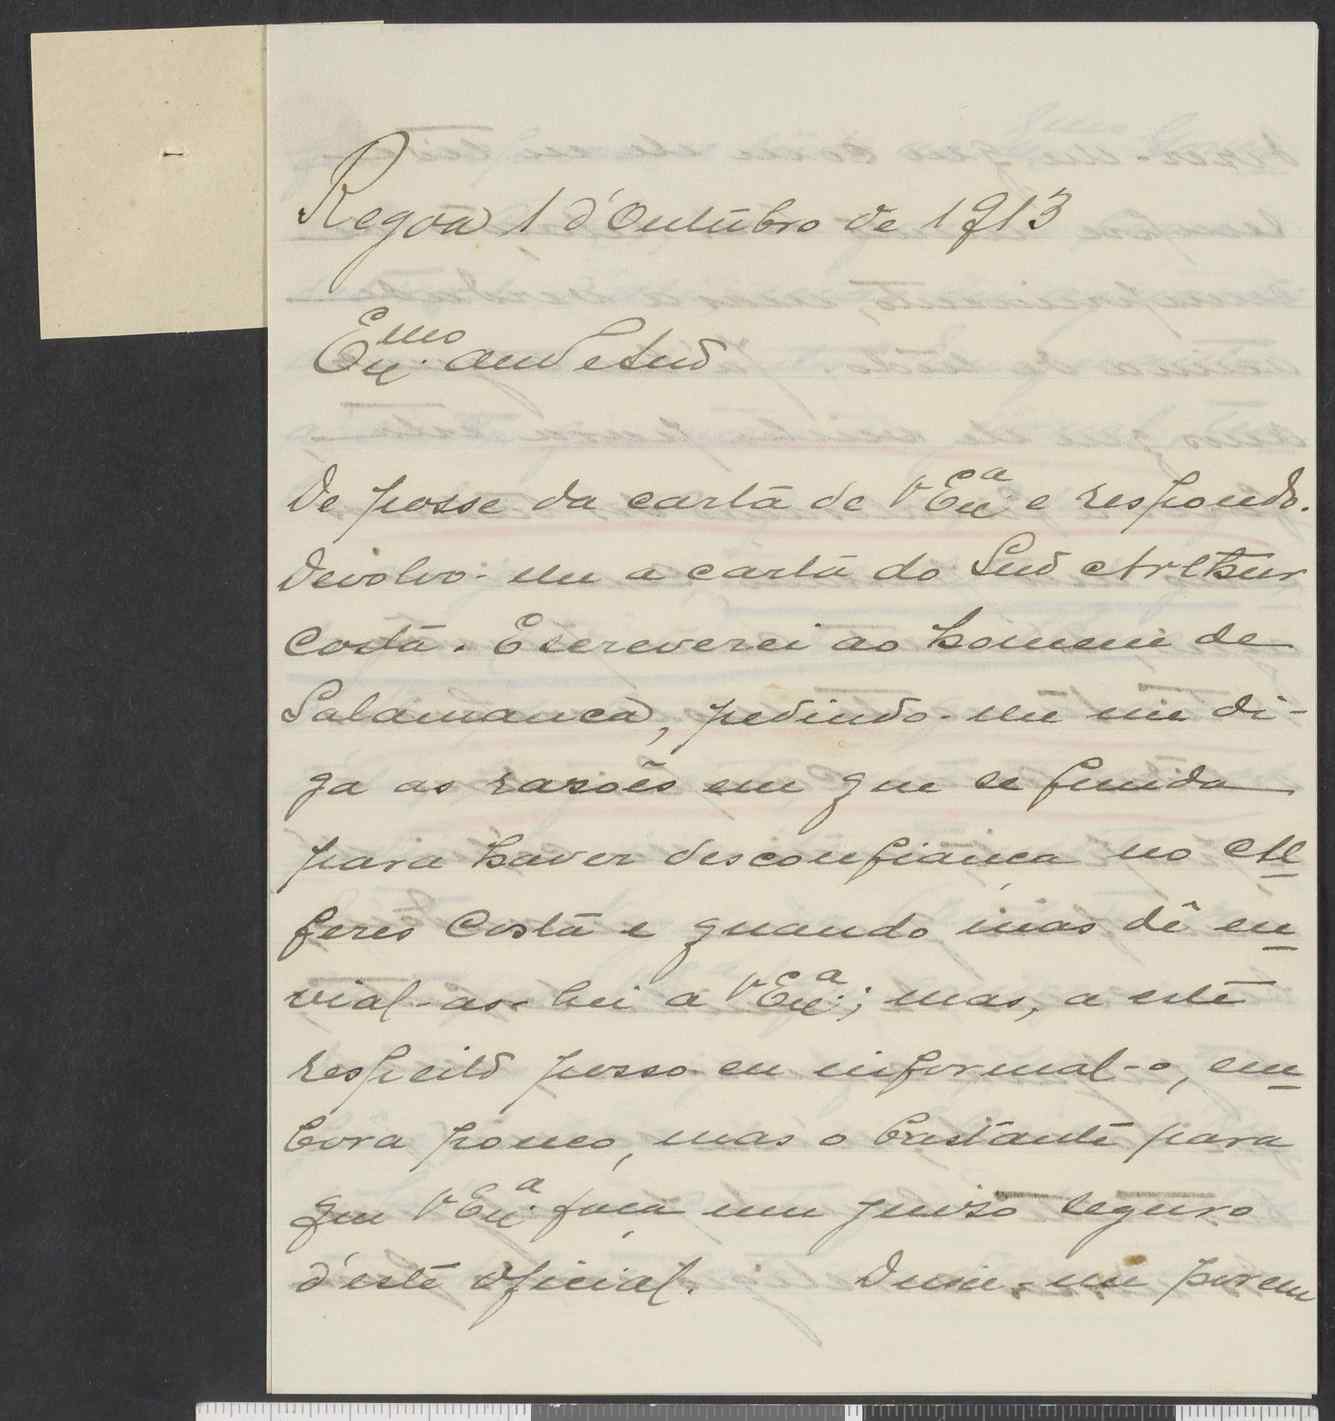 Regoa 1 d'Outubro de 1913
Exmo Am.o e Snr
De posse da carta de V Exa e respondo.
Devolvo-lhe a carta do Snr Arthur
Costa. Escreverei ao homem de
Salamanca, pedindo-lhe me di-
ga as razões em que se funda
para haver desconfiança no Al
feres Costa e quando mas dê en
vial-as-hei a V Exa; mas, a este
respeito posso eu informal-o, em
bora pouco, mas o bastante para
que V Exa faça um juizo seguro
d'este oficial. porem